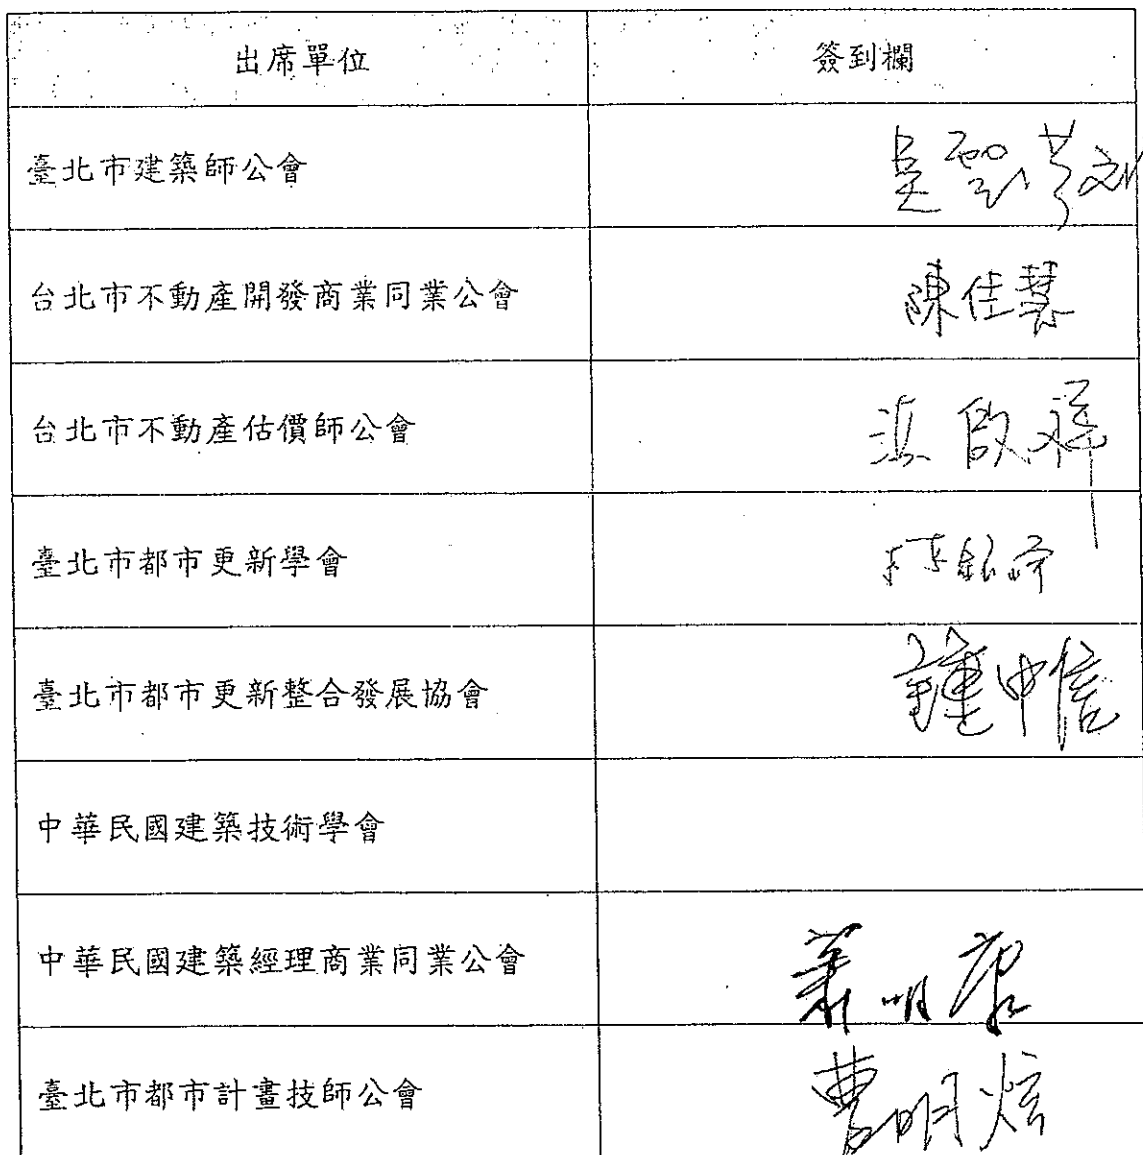 出席單位 簽到欄
臺北市建築師公會
台北市不動產開發商業同業公會 陳佳慧
台北市不動產估價師公會 啟祥
臺北市都市更新學會
臺北市都市更新整合發展協會 鍾中信
中華民國建築技術學會
中華民國建築經理商業同業公會 蕭明康
臺北市都市計畫技師公會 曹明炫